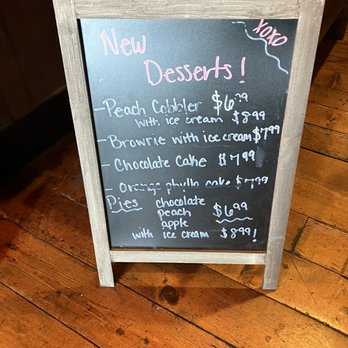 XOXO
New
Desserts!
-Peach Cobbler $6.99
with ice cream $8.99
-Brownie with ice cream $7.99
-Chocolate Cake $7.99
-Orange phyllo cake $7.99
Pies chocolate
peach $6.99
apple
with ice cream $8.99!